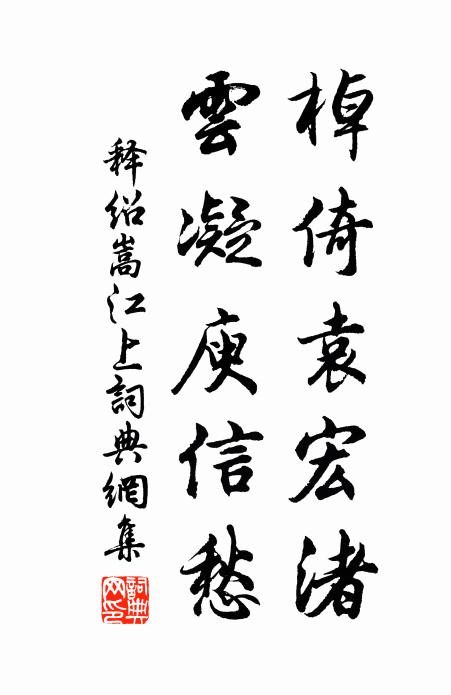 棹倚袁宏渚
雲凝庾信愁
释绍嵩江上詞典網集
詞典網印